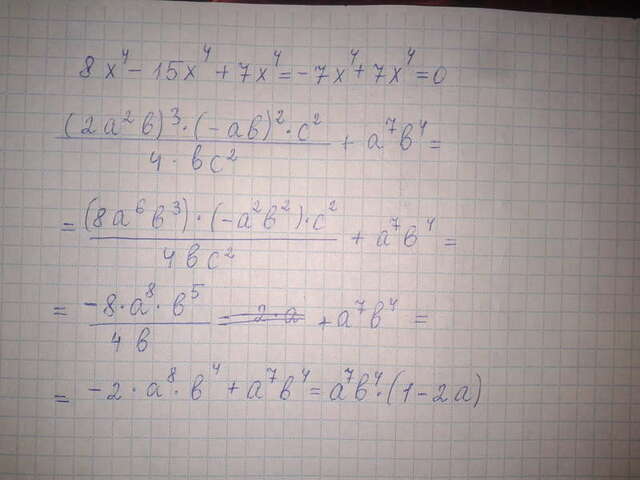 8x⁴ - 15x⁴ + 7x⁴ = -7x⁴ + 7x⁴ = 0
(2a²b)³ · (-ab)² · c² / 4 · bc² + a⁷b⁴ =
= (8a⁶b³) · (-a²b²) · c² / 4bc² + a⁷b⁴ =
= -8 · a⁸ · b⁵ / 4b + a⁷b⁴ =
= -2 · a⁸ · b⁴ + a⁷b⁴ = a⁷b⁴ · (1 - 2a)